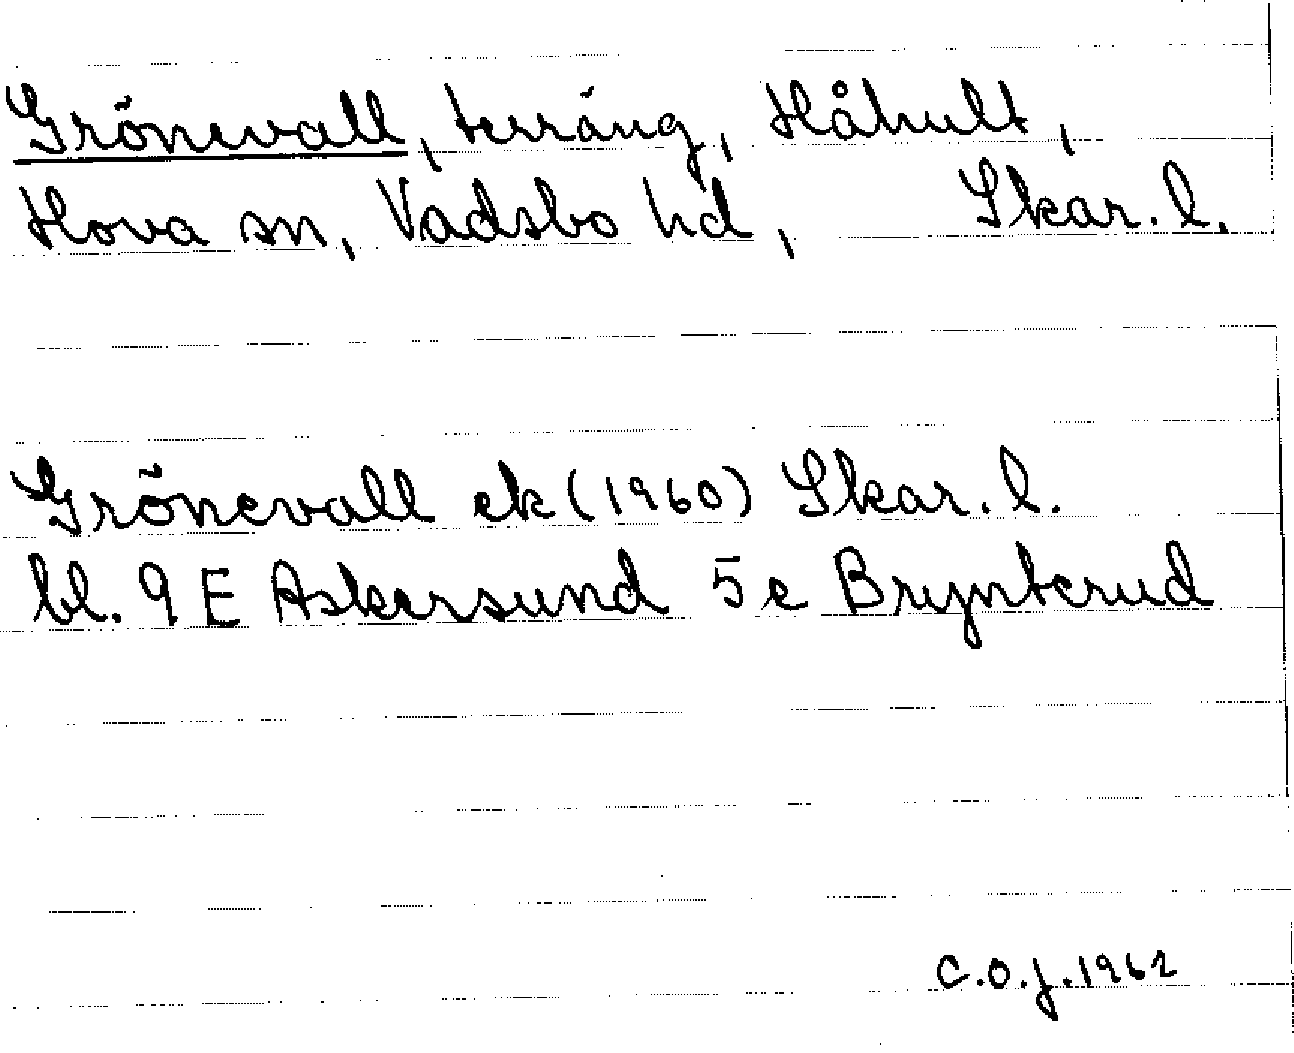 Grönevall, terräng, Håhult,
Hova sn, Vadsbo hd, Skar. l.
Grönevall ek (1960) Skar. l.
bl. 9 E Askersund 5 e Brynterud
C.O.J. 1962